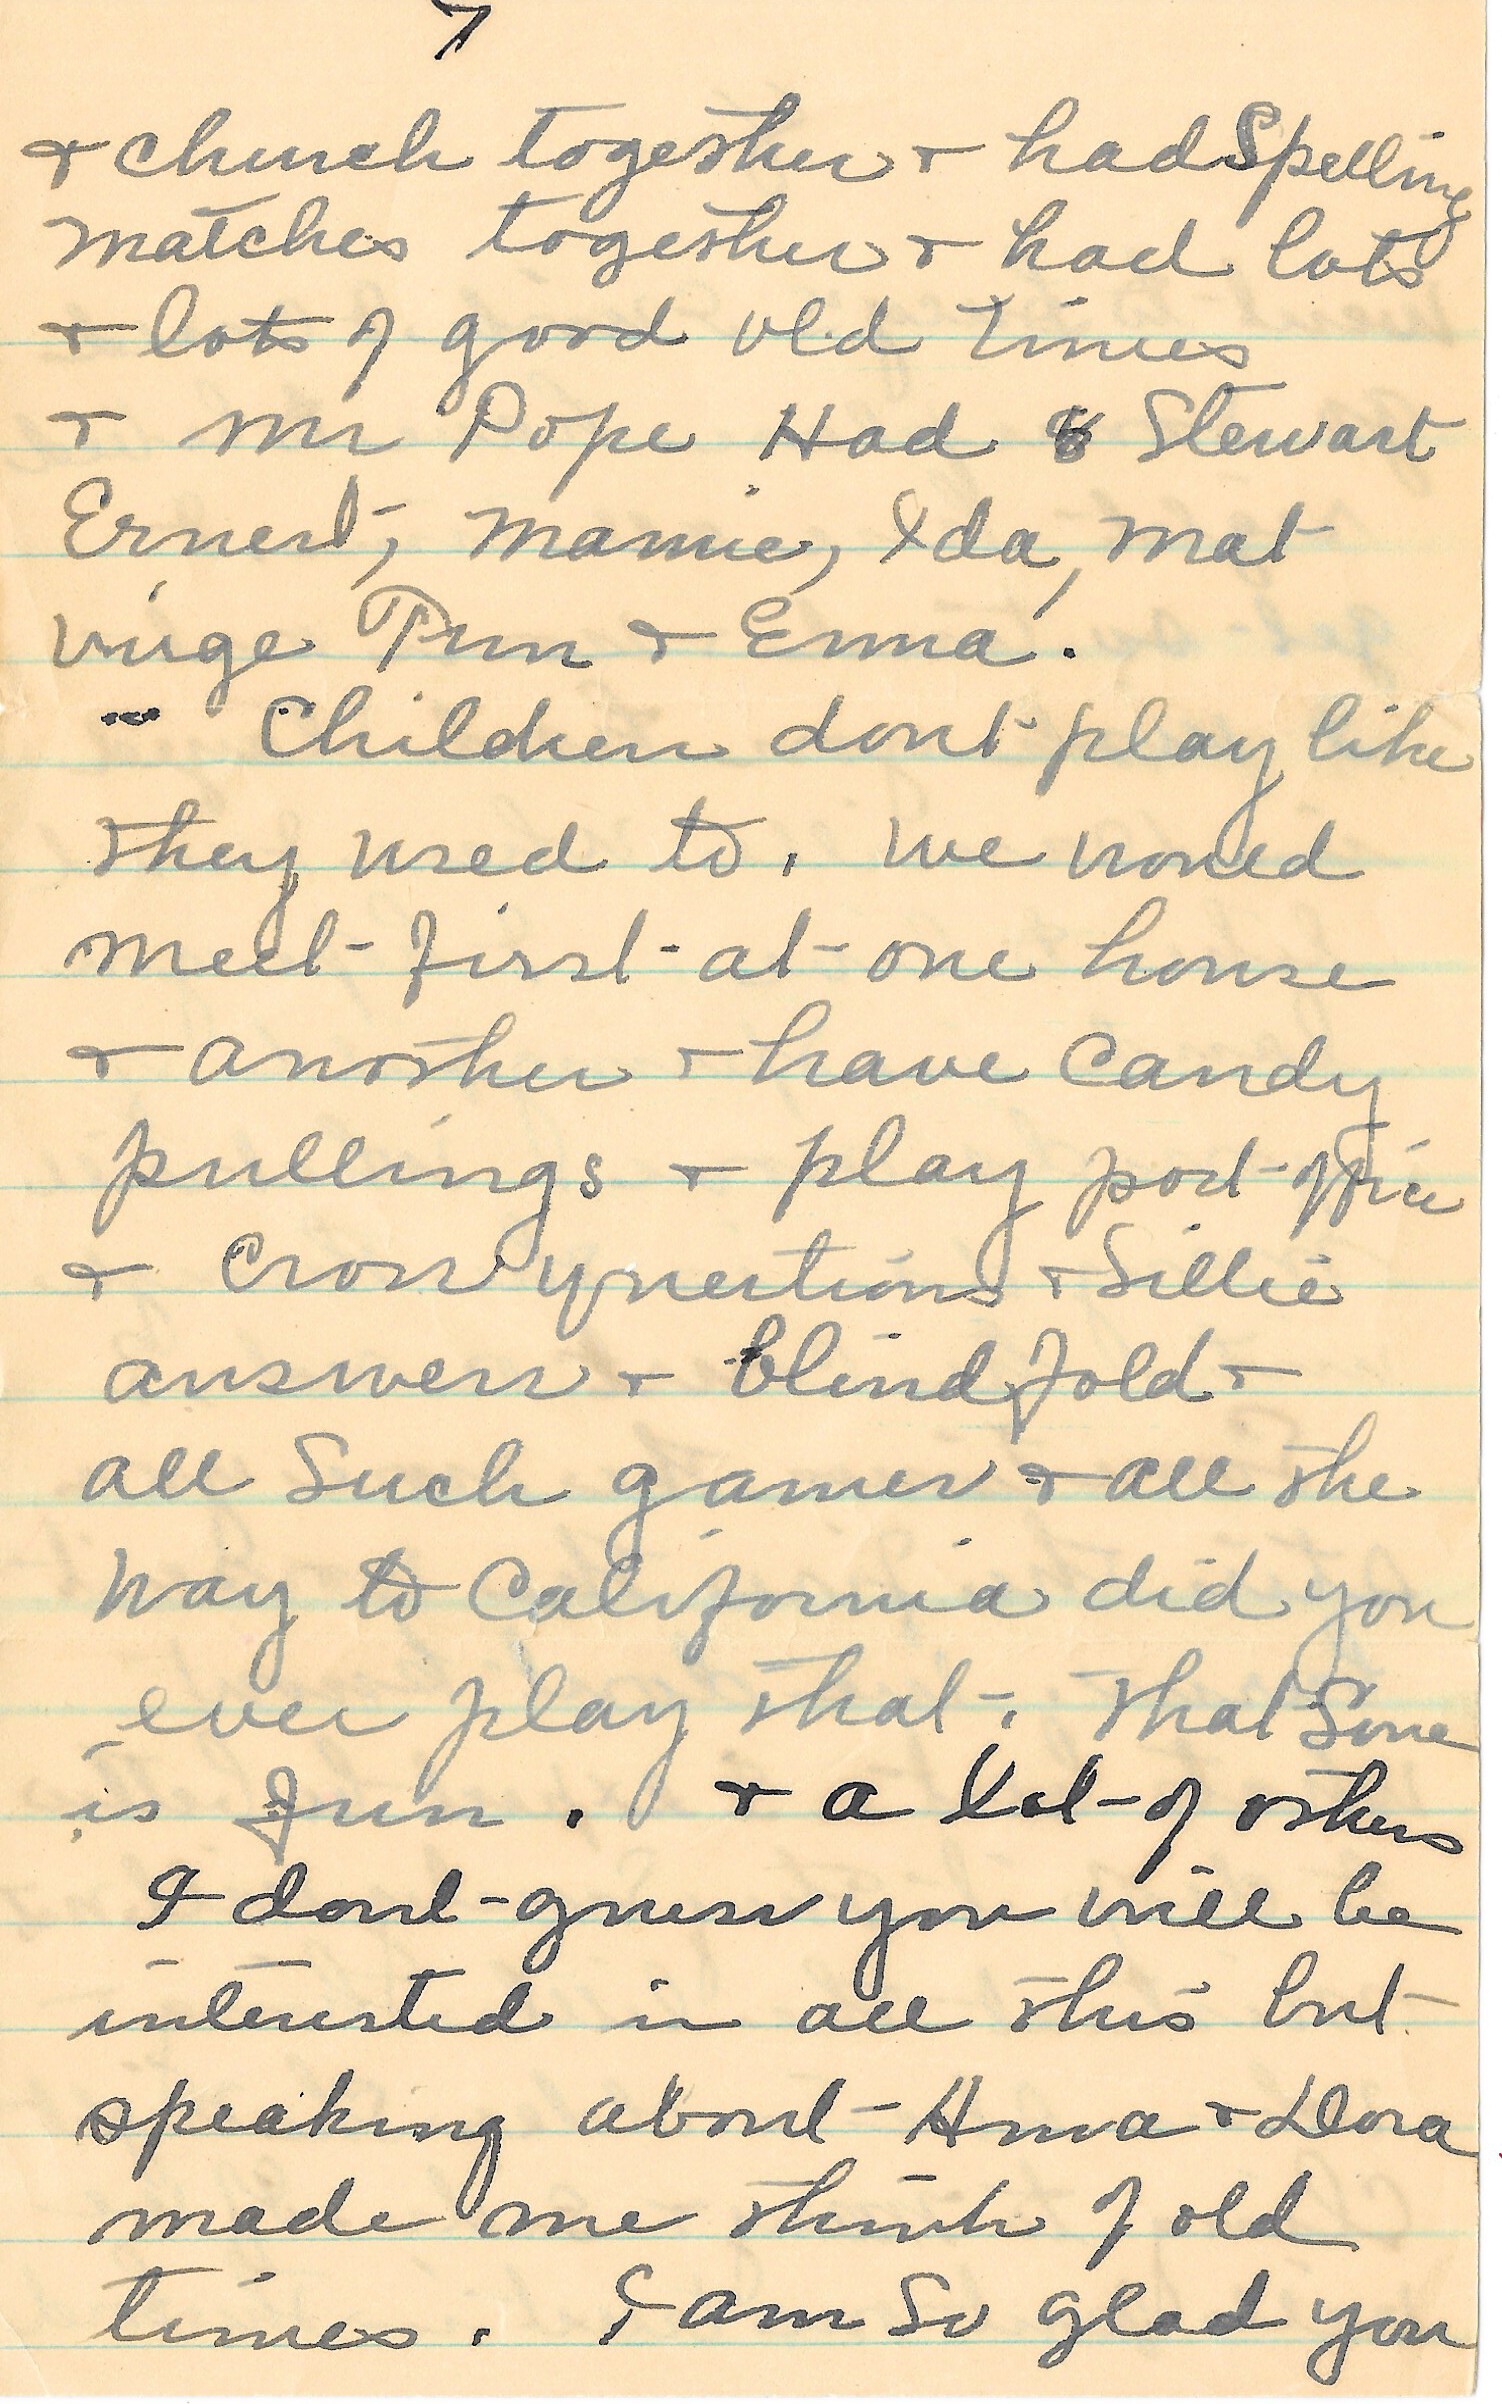 7
& church together & had Spelling
matches together & had lots
& lots of good old times
& Mr Pope Had 8 Stewart
Ernest, Mamie, Ida, Mat
Virge Tom & Emma.
Children dont play like
they used to. We would
meet first at one house
& another & have Candy
pullings & play post office
& Cross questions & Sillie
answers & blind fold &
all Such games & all the
Way to California did you
ever play that. that Sone
is fun. & a Lot of others
I dont guess you will be
interested in all this but
speaking about & Dora
made me think of old
times. I am So glad you